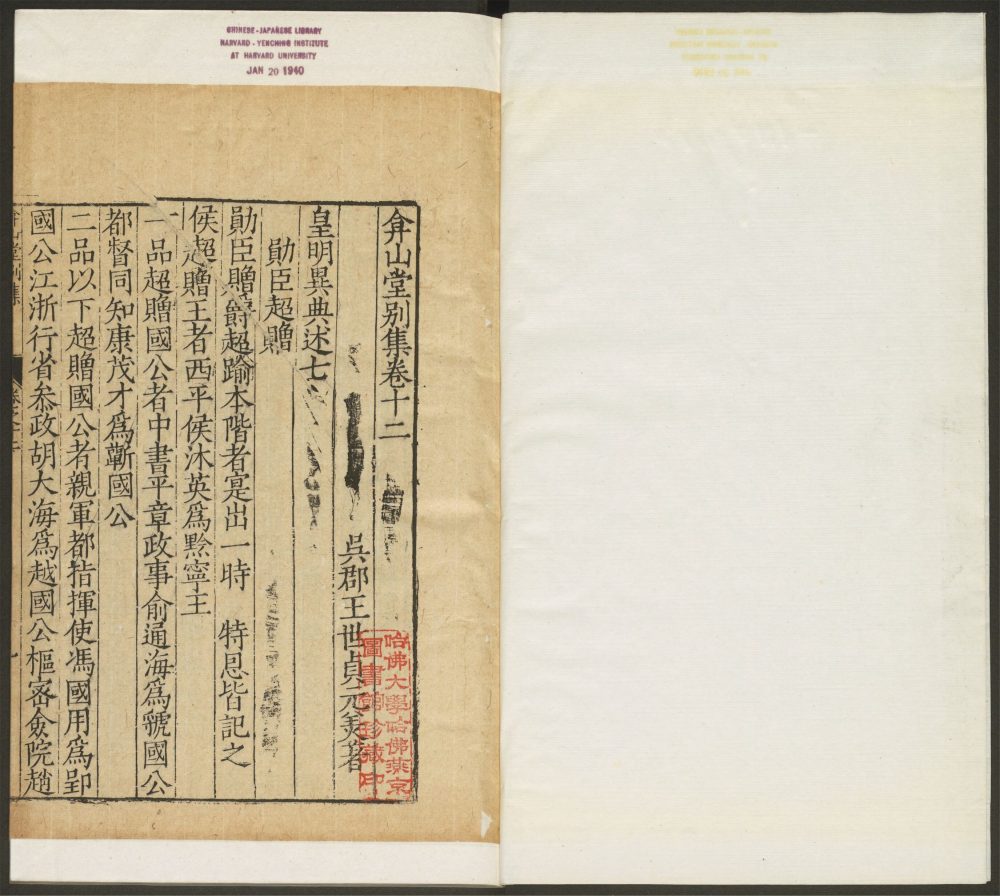 CHINESE-JAPANESE LIBRARY
HARVARD-YENCHING INSTITUTE
AT HARVARD UNIVERSITY
JAN 20 1940
弇山堂别集卷十二
吳郡王世貞元美著
皇明異典述七
勛臣超贈
勛臣贈爵超踰本階者寔出一時 特恩皆記之
侯超贈王者西平侯沐英爲黔寧王
一品超贈國公者中書平章政事俞通海爲虢國公
都督同知康茂才爲蘄國公
二品以下超贈國公者親軍都指揮使馮國用爲郢
國公江浙行省叅政胡大海爲越國公樞宻僉院趙
弇山堂别集
卷之十二
一
哈佛大學哈佛燕京
圖書館珍藏印